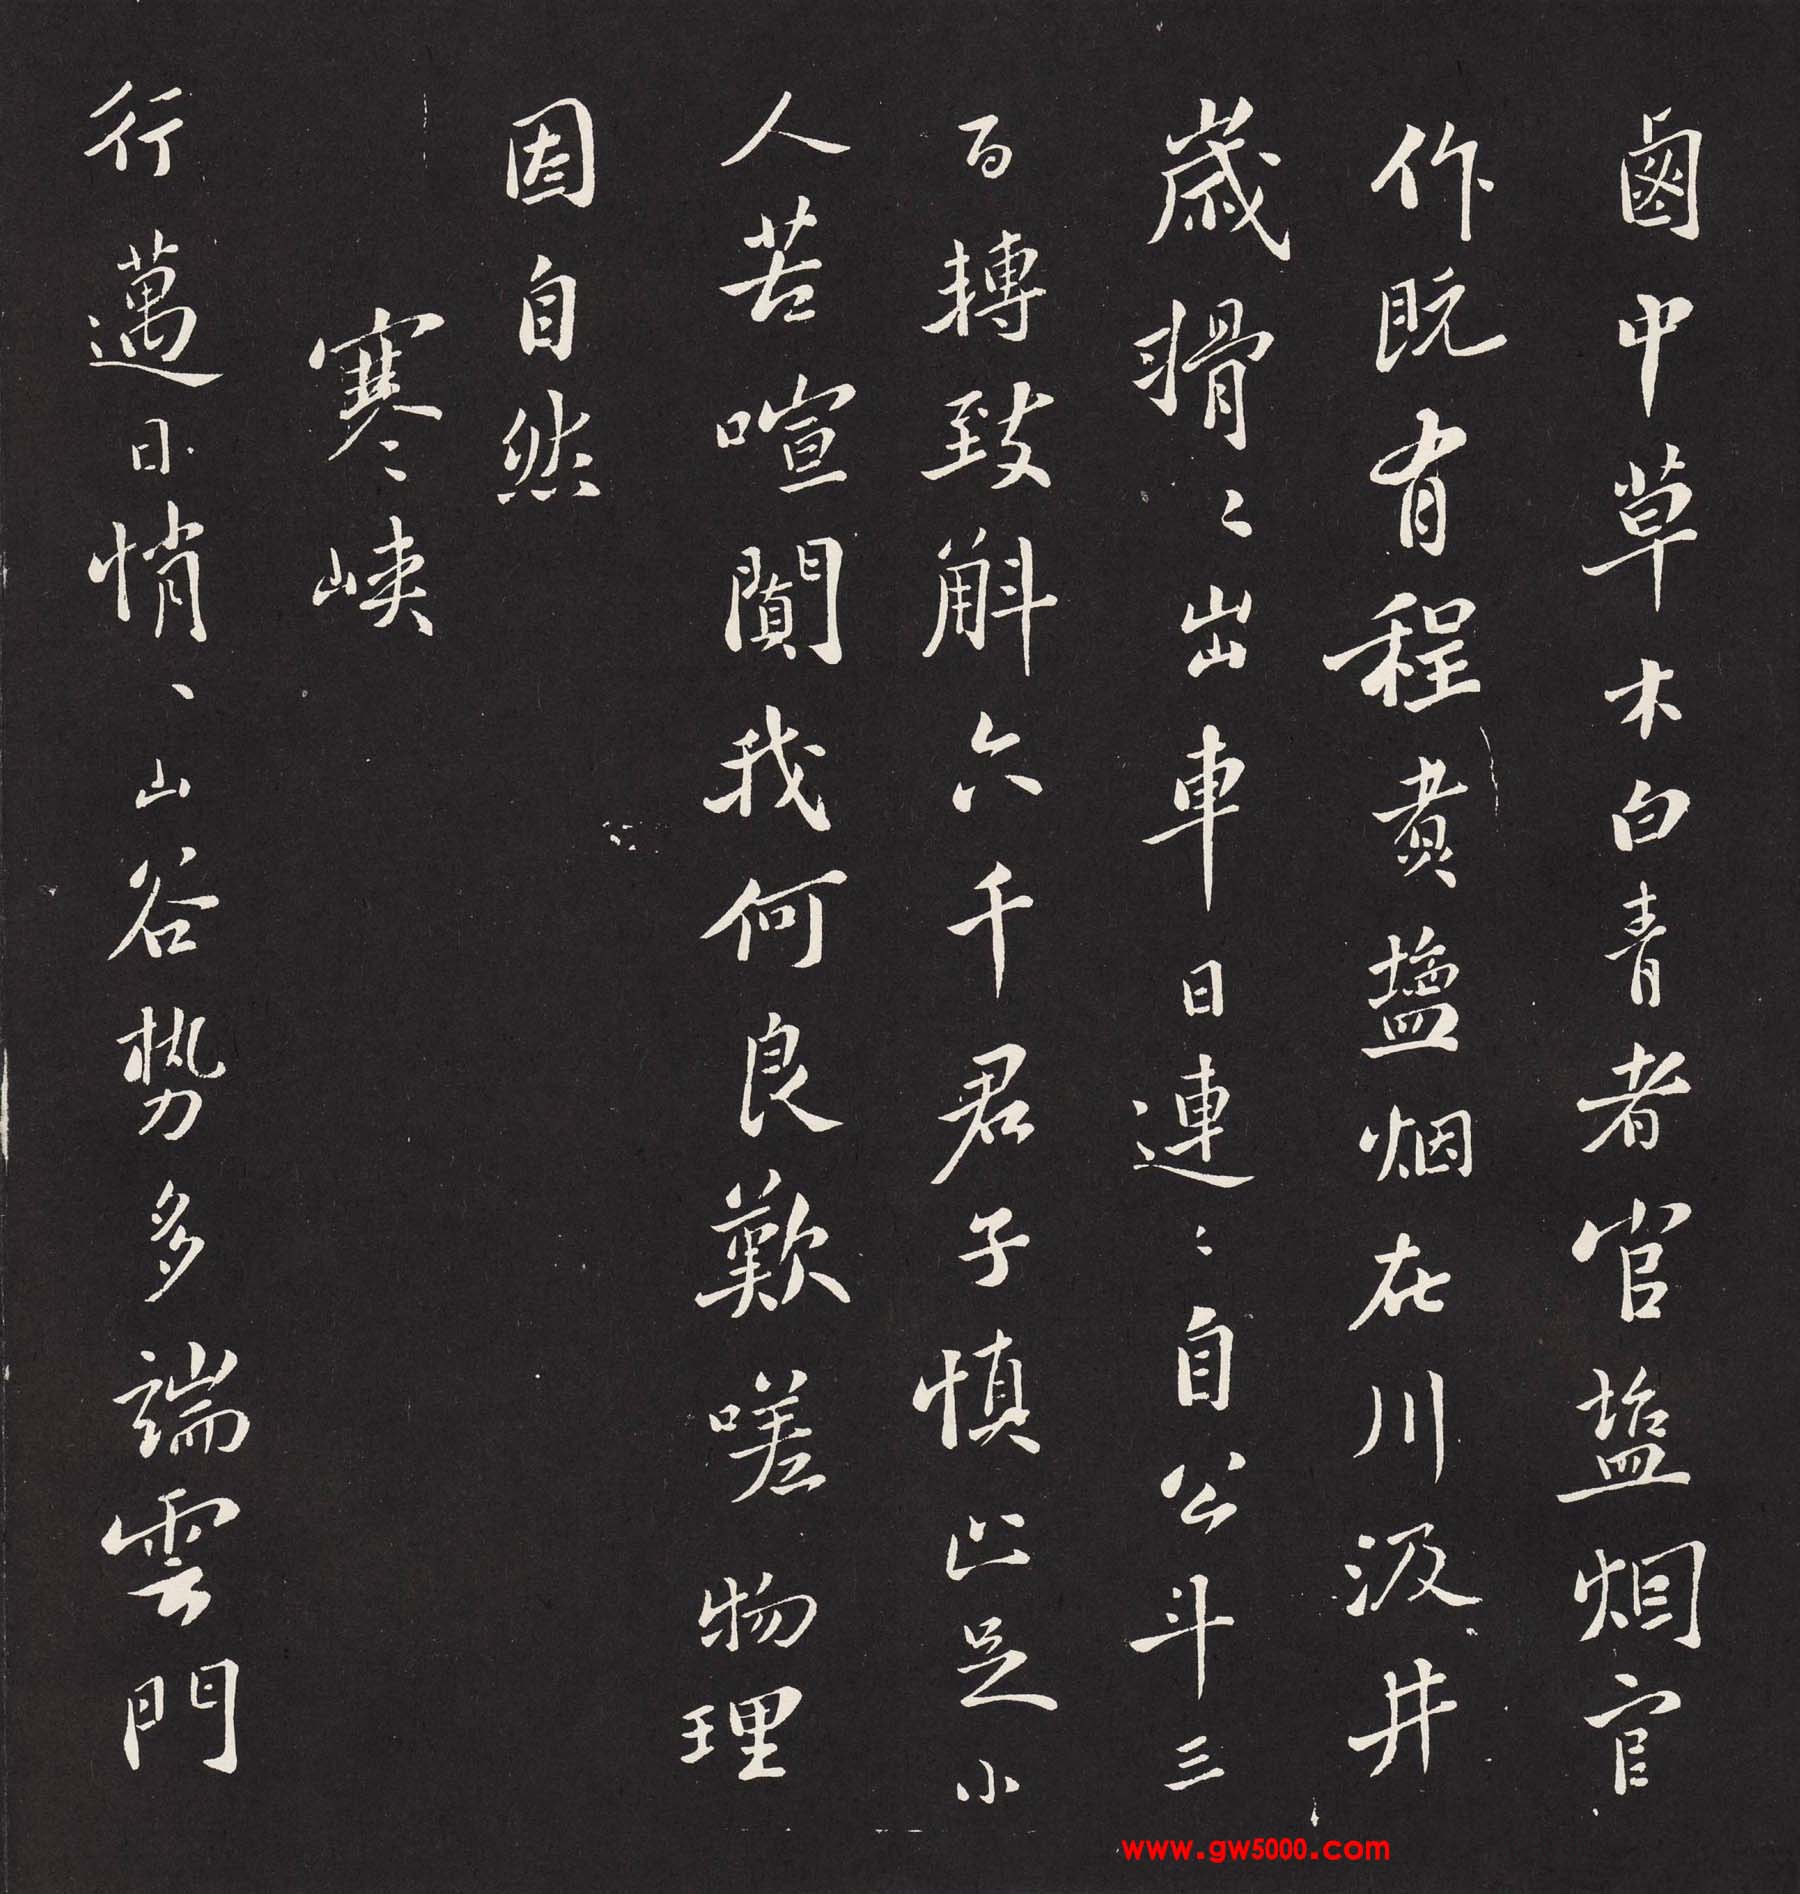 鹵中草木白青者官塩烟官
作既有程煮鹽烟在川汲井
歲搰〻出車日連〻自公斗三
百轉致斛六千君子慎止足小
人苦喧闐我何良歎嗟物理
固自然
寒峽
行邁日悄〻山谷势多端雲門
www.gw5000.com